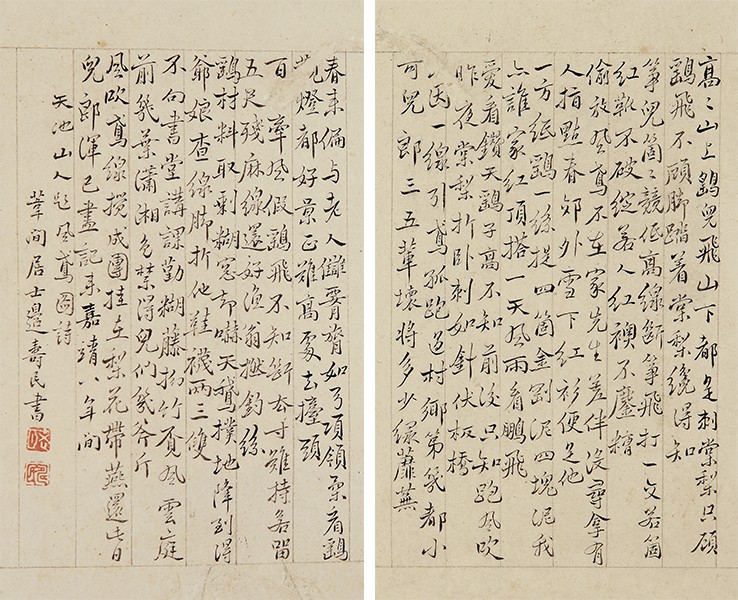 高〻山上鷂兒飛山下都是刺棠梨只顧
鷂飛不顧脚踏着棠梨纔得知
箏兒箇〻競低高線斷箏飛打一交若箇
紅靴不破綻若人紅襖不鏖糟
偷放風鳶不在家先生差伴沒尋拿有
人指點春郊外雪下紅衫便是他
一方紙鷂一絲提四箇金剛泥四塊泥我
亦誰家紅頂搭一天風雨看鵬飛
愛看鑽天鷂子高不知前後只知跑風吹
昨夜棠梨折卧刺如針伏板橋
因一線引鳶孤跑過村鄉第幾都小
可兒郎三五輩壞將多少綠蘼蕪
春來偏與老人讎脊膂如弓項領柔看鷂
燈都好景正難高處去擡頭
百牽風假鷂飛不知斷去寸難持若留
五尺殘麻線還好漁翁撚釣絲
鷂材料取剩糊窓却嚇天鵝撲地降到得
爺娘查線脚拆他鞋襪兩三雙
不向書堂講課勤糊藤扐竹覓風雲庭
前幾葉瀟湘色禁得兒們幾斧斤
風吹鳶線攪成團挂在梨花帶燕還此日
兒郎渾已盡記來嘉靖八年間
天池山人題風鳶圖詩
葦間居士邊壽民書